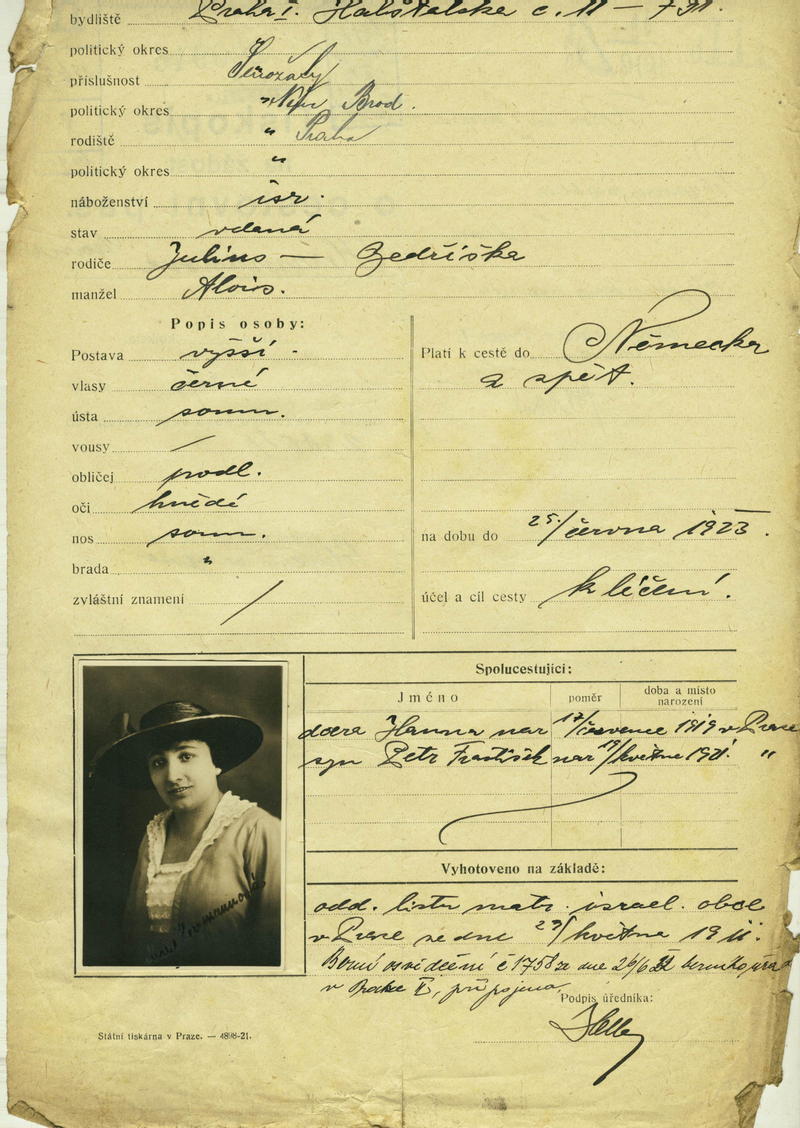 bydliště Praha I. Haštalska č. 11 — 791.
politický okres
příslušnost
politický okres " Něm. Brod.
rodiště " Praha
politický okres "
náboženství isr.
stav vdaná
rodiče Julius — Bedřiška
manžel Alois.
Popis osoby:
Postava vyšší.
vlasy černé
ústa soum.
vousy /
obličej podl.
oči hnědé
nos soum.
brada "
zvláštní znamení /
Platí k cestě do Německa
a zpět.
na dobu do 25/června 1923.
účel a cíl cesty k léčení.
Spolucestující:
Jméno poměr doba a místo narození
dcera Hanna nar 17/července 1919 v Praze
syn Petr František nar 19/května 1921. "
Vyhotoveno na základě:
odd. listu matr. israel. obce
v Praze ze dne 29/května
Berní osvědčení č 1758 ze dne 26/6 22
v Praze připojeno
Podpis úředníka:
Státní tiskárna v Praze. — 4898-21.